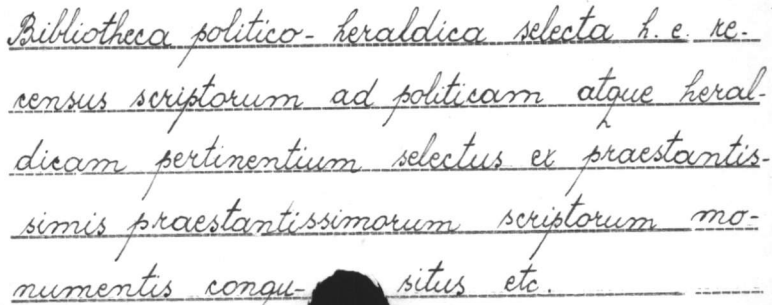 Bibliotheca politico-heraldica selecta h. e. re-
census scriptorum ad politicam atque heral-
dicam pertinentium selectus ex praestantis-
simis praestantissimorum scriptorum mo-
numentis conqu- situs etc.